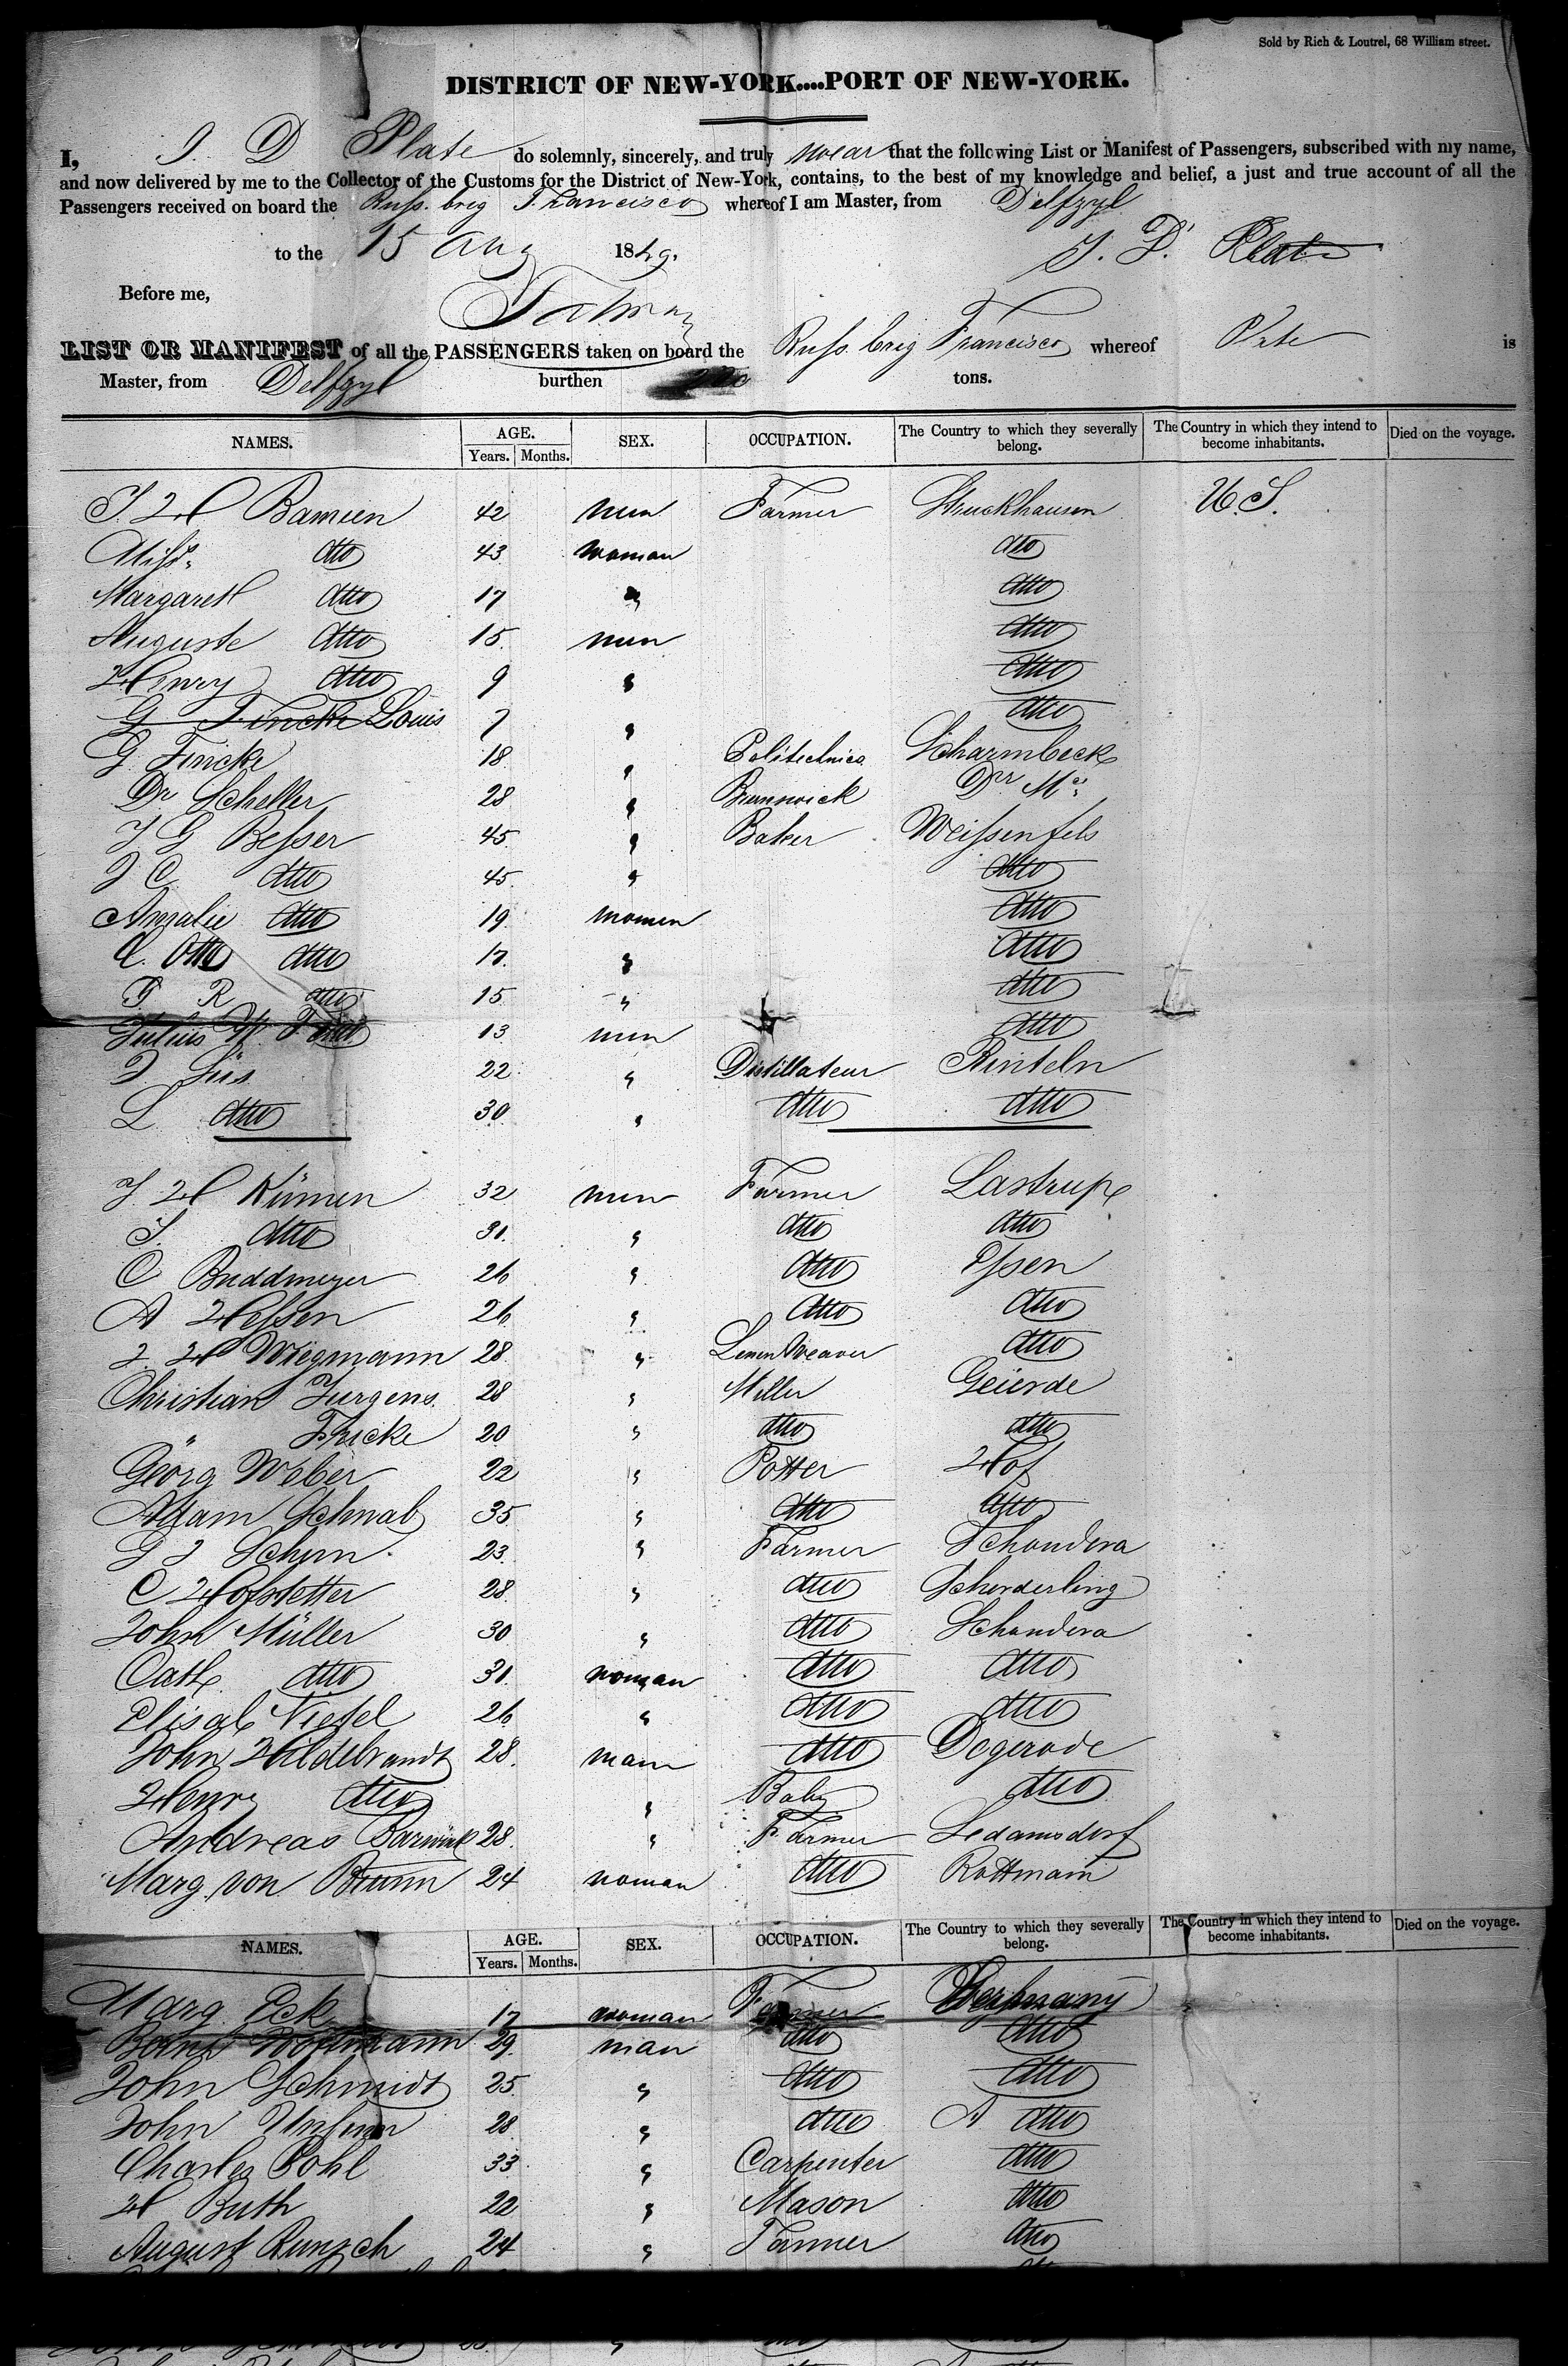 Sold by Rich & Loutrel, 68 William street.
DISTRICT OF NEW-YORK....PORT OF NEW-YORK.
I, J. D Plate do solemnly, sincerely, and truly swear that the following List or Manifest of Passengers, subscribed with my name,
and now delivered by me to the Collector of the Customs for the District of New-York, contains, to the best of my knowledge and belief, a just and true account of all the
Passengers received on board the Russ. brig Francisco whereof I am Master, from Delfzyl
to the 15 Aug 1849. J. D. Plate
Before me,
LIST OR MANIFEST of all the PASSENGERS taken on board the Russ. brig Francisco whereof Plate is
Master, from Delfzyl burthen tons.
NAMES. AGE. SEX. OCCUPATION. The Country to which they severally belong. The Country in which they intend to become inhabitants. Died on the voyage.
Years. Months.
J. H Bamien 42 men Farmer Struckhausen U.S.
Miss. dtto 43 woman dto
Margareth dtto 17 " dtto
Auguste dtto 15 men dtto
Henry dtto 9 " dtto
G Fincke Louis 7 " dtto
G. Fincke 18 " Politechnica Scharmbeck
Dr Scheller 28 " Brunswick Dr Md
J G Besser 45 " Baker Weissenfels
J C dtto 45 " dtto
Amalie dtto 19 women dtto
C. Otto dtto 17 " dtto
J R dtto 15 " dtto
Julius W. 13 men dtto
J Süs 22 " Distillateur Rinteln
L dtto 30 " dtto dtto
J H Kümen 32 men Farmer Lastrup
J. dtto 31 " dtto dtto
C Buddmeyer 26 " dtto Essen
A Hessen 26 " dtto dtto
J. H Wiegmann 28 " Linen Weaver dtto
Christian Jurgens 28 " Miller Geierde
" Fricke 20 " dtto dtto
Georg Weber 22 " Potter Hof
Adam Schwab 35 " dtto dtto
G J Schirn 23 " Farmer Schondera
C Hofstetter 28 " dtto Scherderling
John Müller 30 " dtto Schondera
Cath dtto 31 woman dtto dtto
Elisab Niefel 26 " dtto dtto
John Hildebrandt 28 man dtto Degerode
Henry dtto " Baby dtto
Andreas Barwink 28 " Farmer Ledamsdorf
Marg. von Brunn 24 woman dtto Rottmain
NAMES. AGE. SEX. OCCUPATION. The Country to which they severally belong. The Country in which they intend to become inhabitants. Died on the voyage.
Years. Months.
Marg. Eck 17 woman Farmer Germany
29 man dtto dtto
John Schmidt 25 " dtto dtto
John 28 " dtto A dtto
Charles Pohl 33 " Carpenter dtto
H Buth 22 " Mason dtto
August Runsch 24 " Farmer dtto